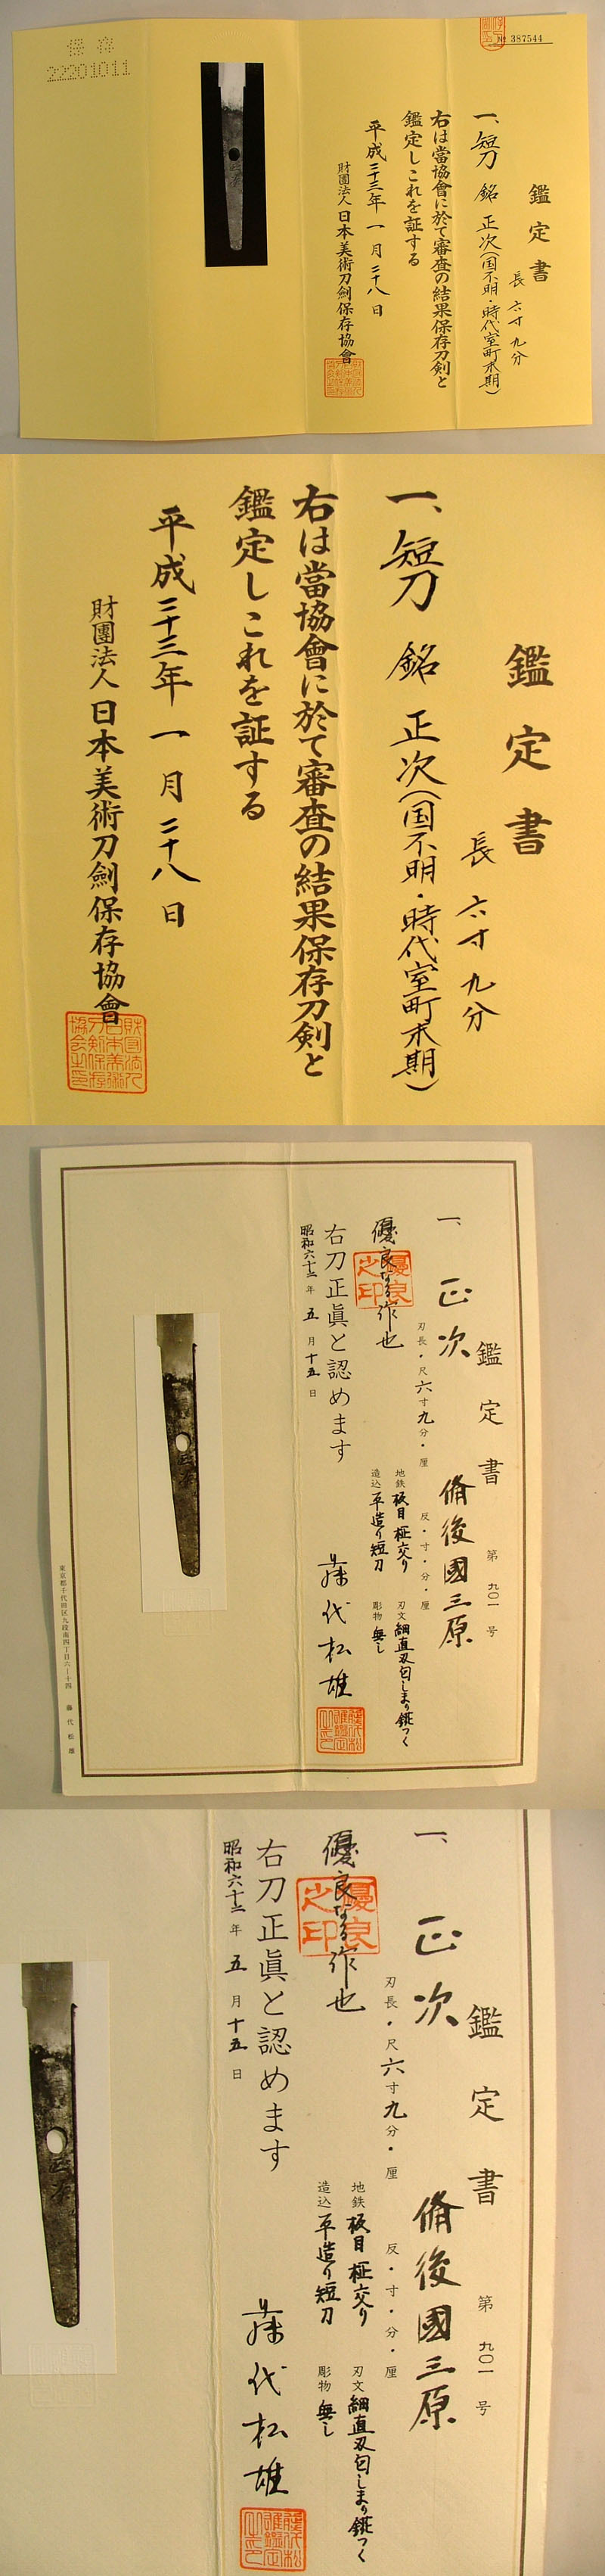 保存
22201011
No 387544
鑑定書
長 六寸九分
一、短刀 銘 正次(国不明・時代室町末期)
右は當協會に於て審査の結果保存刀剣と
鑑定しこれを証する
平成二十三年一月二十八日
財團法人日本美術刀劍保存協會
鑑定書
長 六寸九分
一、短刀 銘 正次(国不明・時代室町末期)
右は當協會に於て審査の結果保存刀剣と
鑑定しこれを証する
平成二十三年一月二十八日
財團法人日本美術刀劍保存協會
鑑定書 第九〇一号
一、正次 備後國三原
刃長・尺六寸九分・厘 反・寸・分・厘
地鉄 板目柾交り 刃文 細直刃匂しまり錵つく
造込 平造り短刀 彫物 無し
優良なる作也
優良之印
右刀正眞と認めます
藤代松雄
昭和六十二年五月十五日
東京都千代田区九段南四丁目六ー十四 藤代松雄
鑑定書 第九〇一号
一、正次 備後國三原
刃長・尺六寸九分・厘 反・寸・分・厘
地鉄 板目柾交り 刃文 細直刃匂しまり錵つく
造込 平造り短刀 彫物 無し
優良なる作也
優良之印
右刀正眞と認めます
藤代松雄
昭和六十二年五月十五日